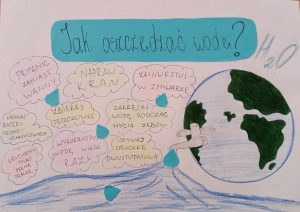 Jak oszczędzać wodę?
H2O
PRYSZNIC
ZAMIAST
WANNY
NAPRAW
KRAN
ZAINWESTUJ
W ZMYWARKĘ
ZBIERAJ
DESZCZÓWKĘ
ZAKRĘCAJ
WODĘ PODCZAS
MYCIA ZĘBÓW
WYKORZYSTUJ
WODĘ WIELE
RAZY
UŻYWAJ
SPŁUCZKĘ
DWUSTOPNIOWĄ